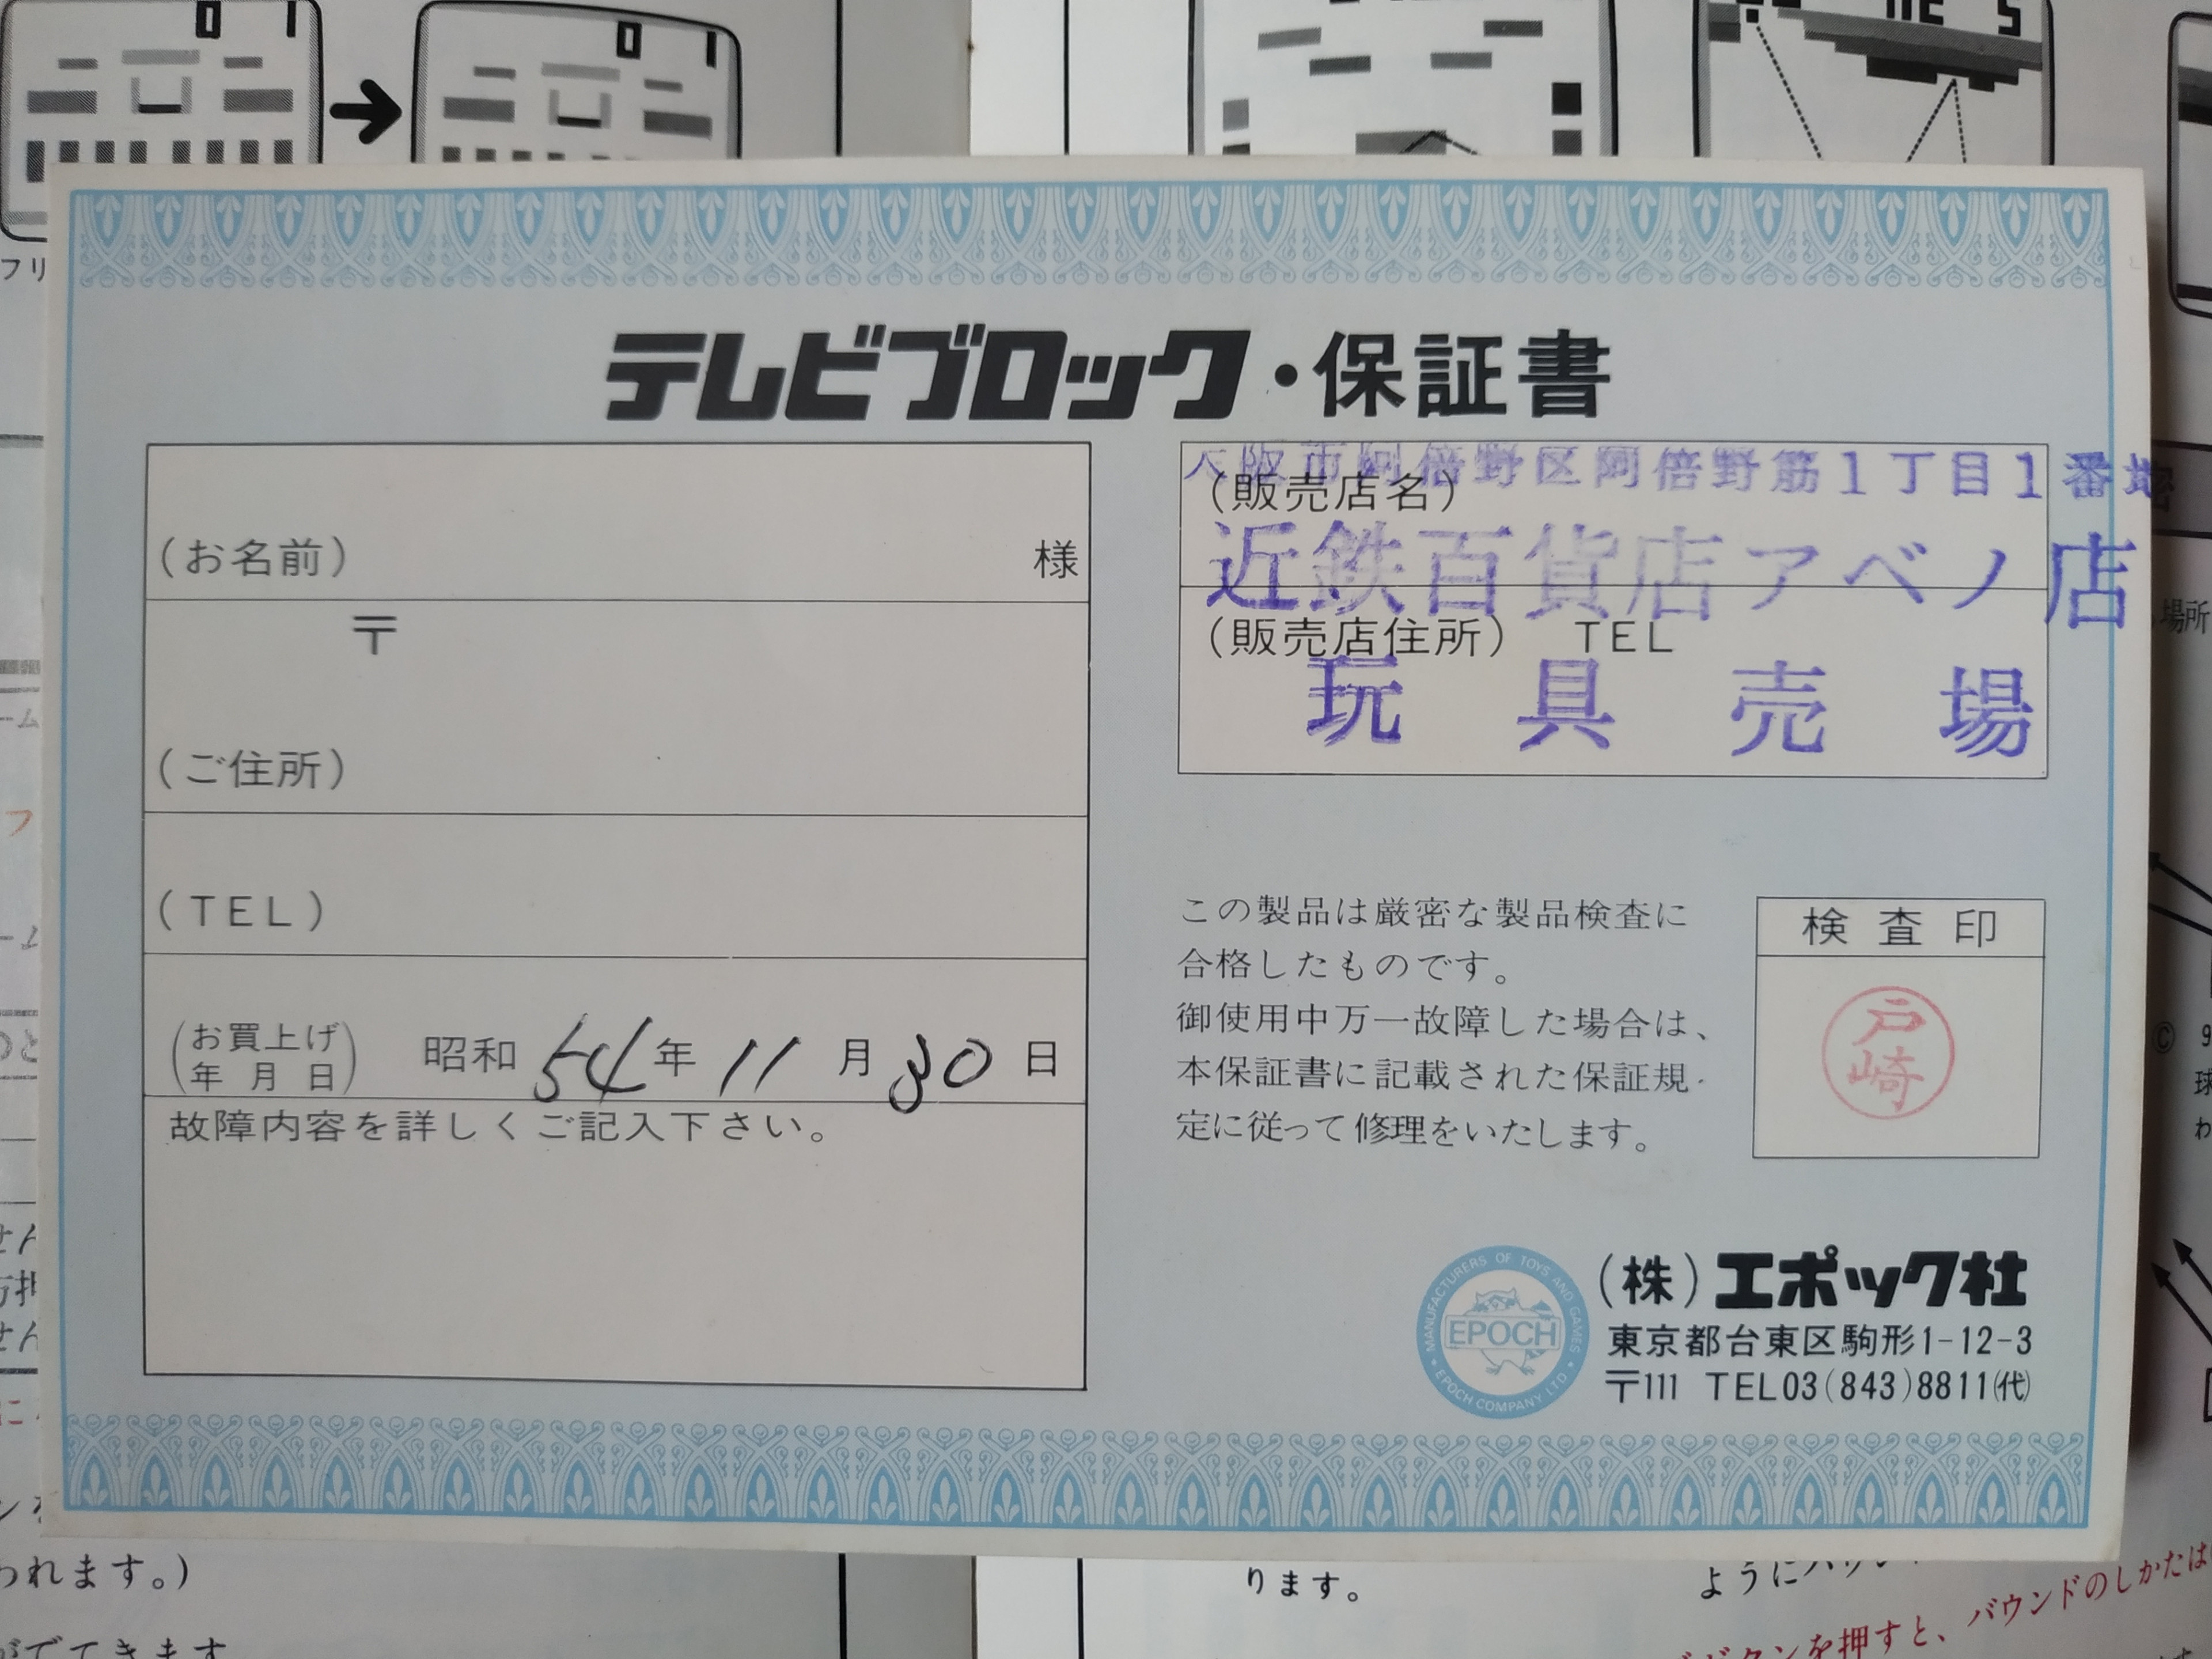 0 1
0 1
5
フリ
テレビブロック・保証書
(お名前) 様
〒
(ご住所)
(TEL)
(お買上げ年月日) 昭和54年11月30日
故障内容を詳しくご記入下さい。
大阪市阿倍野区阿倍野筋1丁目1番地
(販売店名)
近鉄百貨店アベノ店
(販売店住所) TEL
玩具売場
この製品は厳密な製品検査に
合格したものです。
御使用中万一故障した場合は、
本保証書に記載された保証規
定に従って修理をいたします。
検査印
戸崎
MANUFACTURERS OF TOYS AND GAMES
EPOCH
EPOCH COMPANY LTD
(株)エポック社
東京都台東区駒形1-12-3
〒111 TEL03(843)8811(代)
場所
われます。)
がでてきます
ります。
ように
ボタンを押すと、バウンドのしかたは